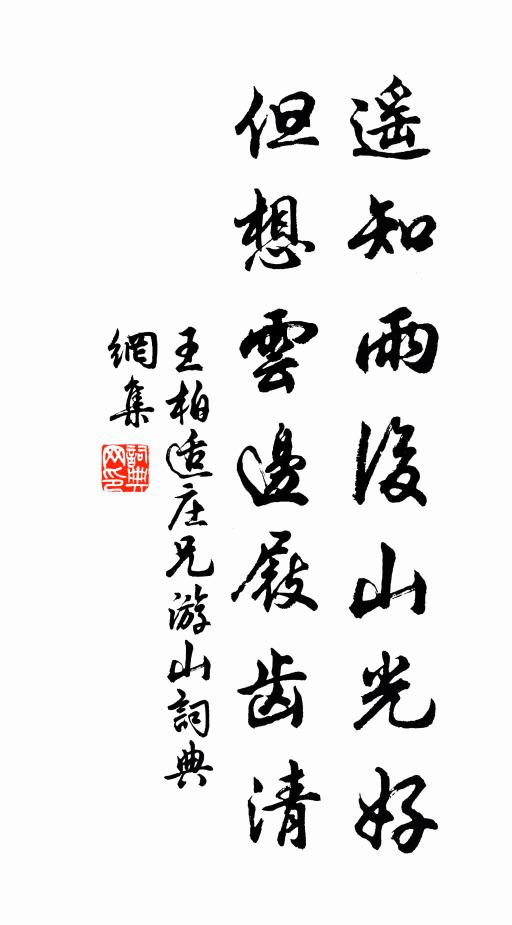 遙知雨後山光好
但想雲邊屐齿清
王柏适庄兄游山詞典
網集
詞典网印